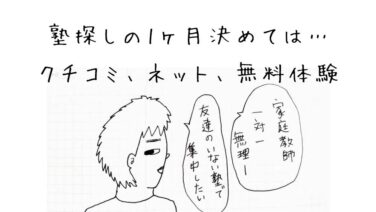 塾探しの1ヶ月決めては…
クチコミ、ネット、無料体験
家庭教師
一対一
無理ー
友達のいない塾で
集中したい